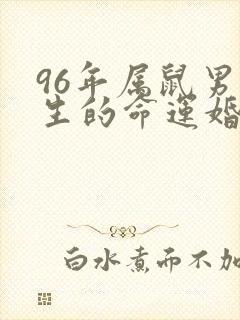 96年属鼠男
生的命运婚
白水煮而不加